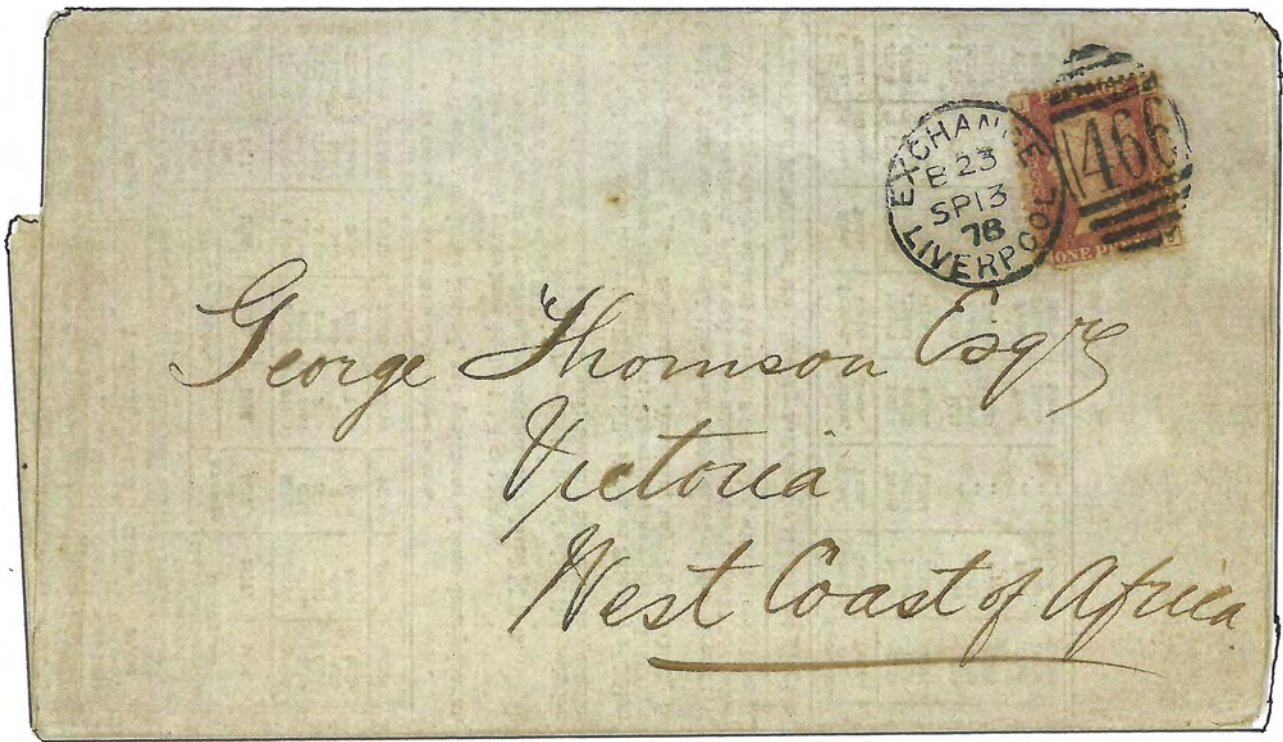 EXCHANGE
B 23
SP 13
78
LIVERPOOL
466
ONE PENNY
George Thomson Esqre
Victoria
West Coast of Africa